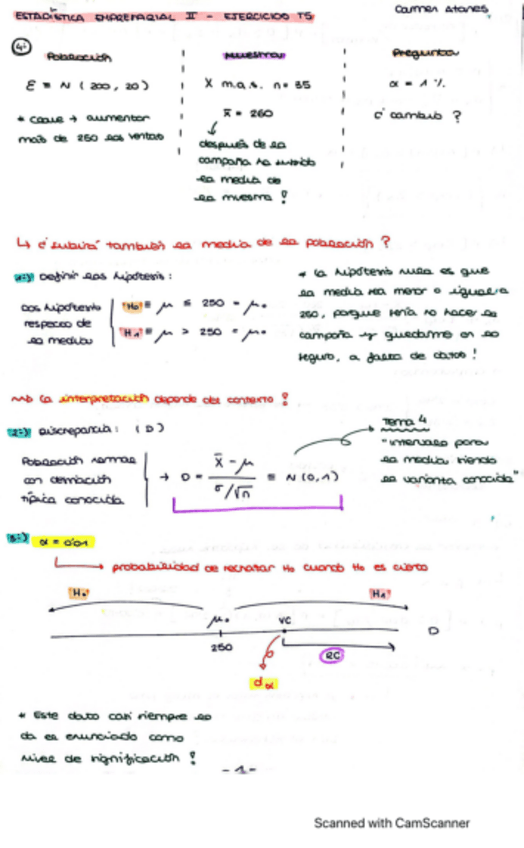 ESTADÍSTICA EMPRESARIAL II - EJERCICIOS T5
Carmen Atanes
4.
Población
ξ ≡ N (200, 20)
* Coste → aumentar
más de 250 las ventas
Muestra
X m.a.s. n = 35
x̄ = 260
↓
después de la
campaña ha subido
la media de
la muestra !
Pregunta
α = 1 %
¿ cambió ?
↳ ¿ subirá también la media de la población ?
1º) Definir las hipótesis :
Dos hipótesis
respecto de
la media
H₀ ≡ μ ≤ 250 = μ₀
H₁ ≡ μ > 250 = μ₀
* la hipótesis nula es que
la media sea menor o igual a
250, porque sería no hacer la
campaña y quedarme en lo
seguro, a falta de datos !
la interpretación depende del contexto !
2º) Discrepancia : (D)
Población normal
con desviación
típica conocida
→ D = (x̄ - μ) / (σ/√n) ≡ N (0,1)
Tema 4
"intervalo para
la media siendo
la varianza conocida"
3º) α = 0'01
probabilidad de rechazar H₀ cuando H₀ es cierta
H₀ H₁
μ₀ VC
250 RC D
dα
* Este dato casi siempre lo
da el enunciado como
nivel de significación !
-1-
Scanned with CamScanner